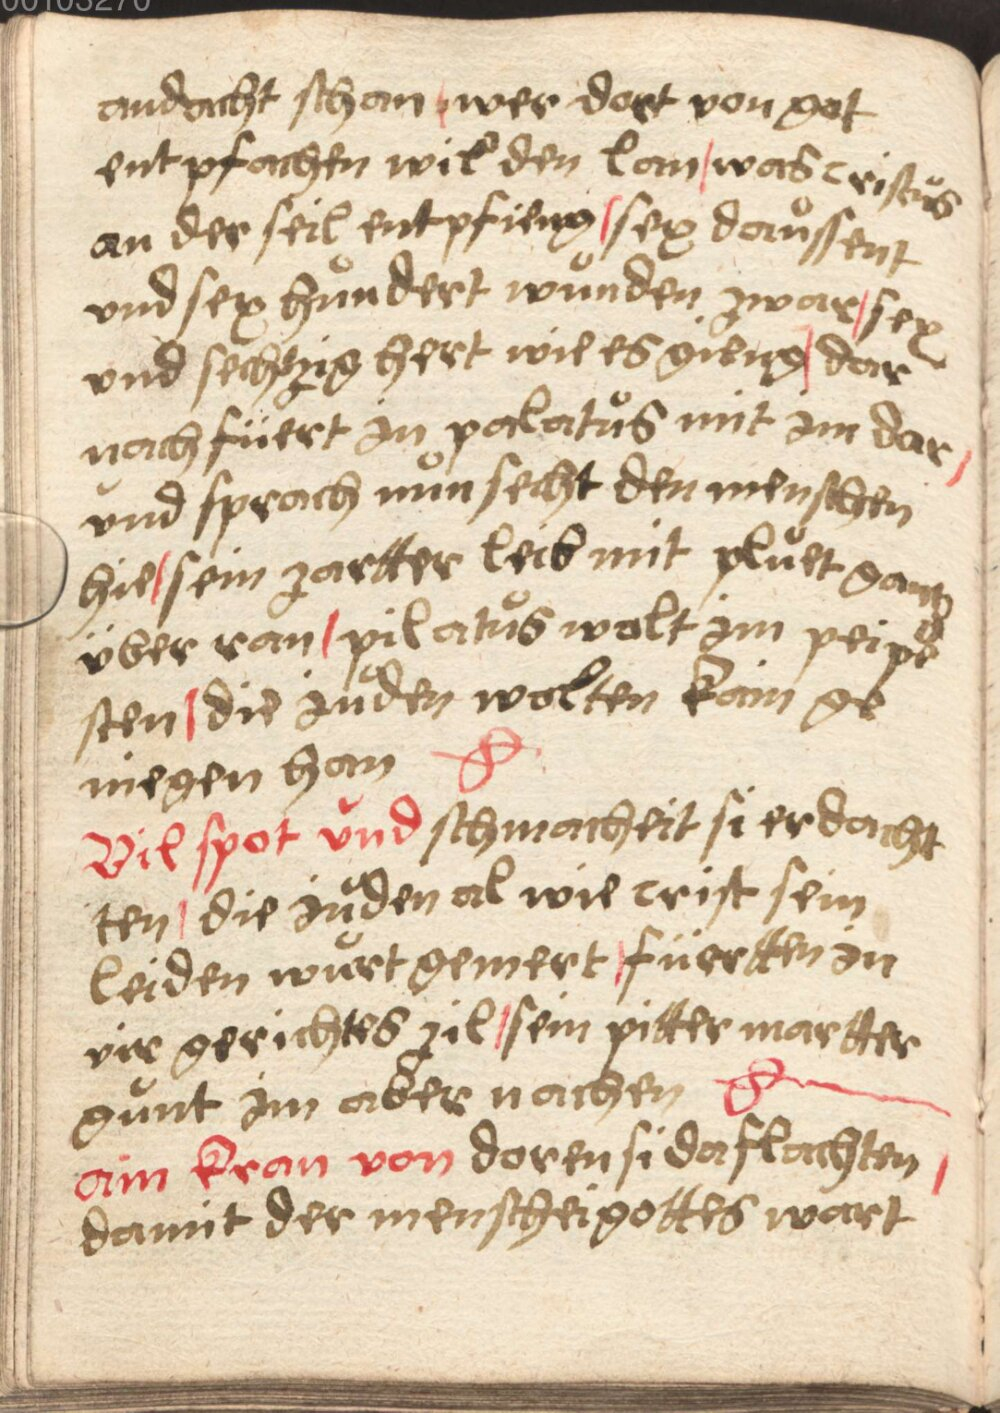 00103270
andacht schan / wer dort von got
entpfachen wil den lan / was cristůs
an der seil entpfieng / sex daůssent
vnd sex hůndert wůnden zwar / sex
vnd sechtzig hert wie es gieng / dar
nach füert in palatůs mit im dar /
vnd sprach nůn secht den menschen
hie / sein zartter leib mit plůet gantz
über ran / pilatůs wolt im peipe
sten / die jůden wolten kain ge
niegen han
Vil spot vnd schmacheit si erdacht
ten / die jůden al wie crist sein
leiden wůrt gemert / füertten in
vir gerichtes zil / sein pitter martter
gůnt im aber nachen
ain kran von doren si da flachten /
damit der menschei gottes wart